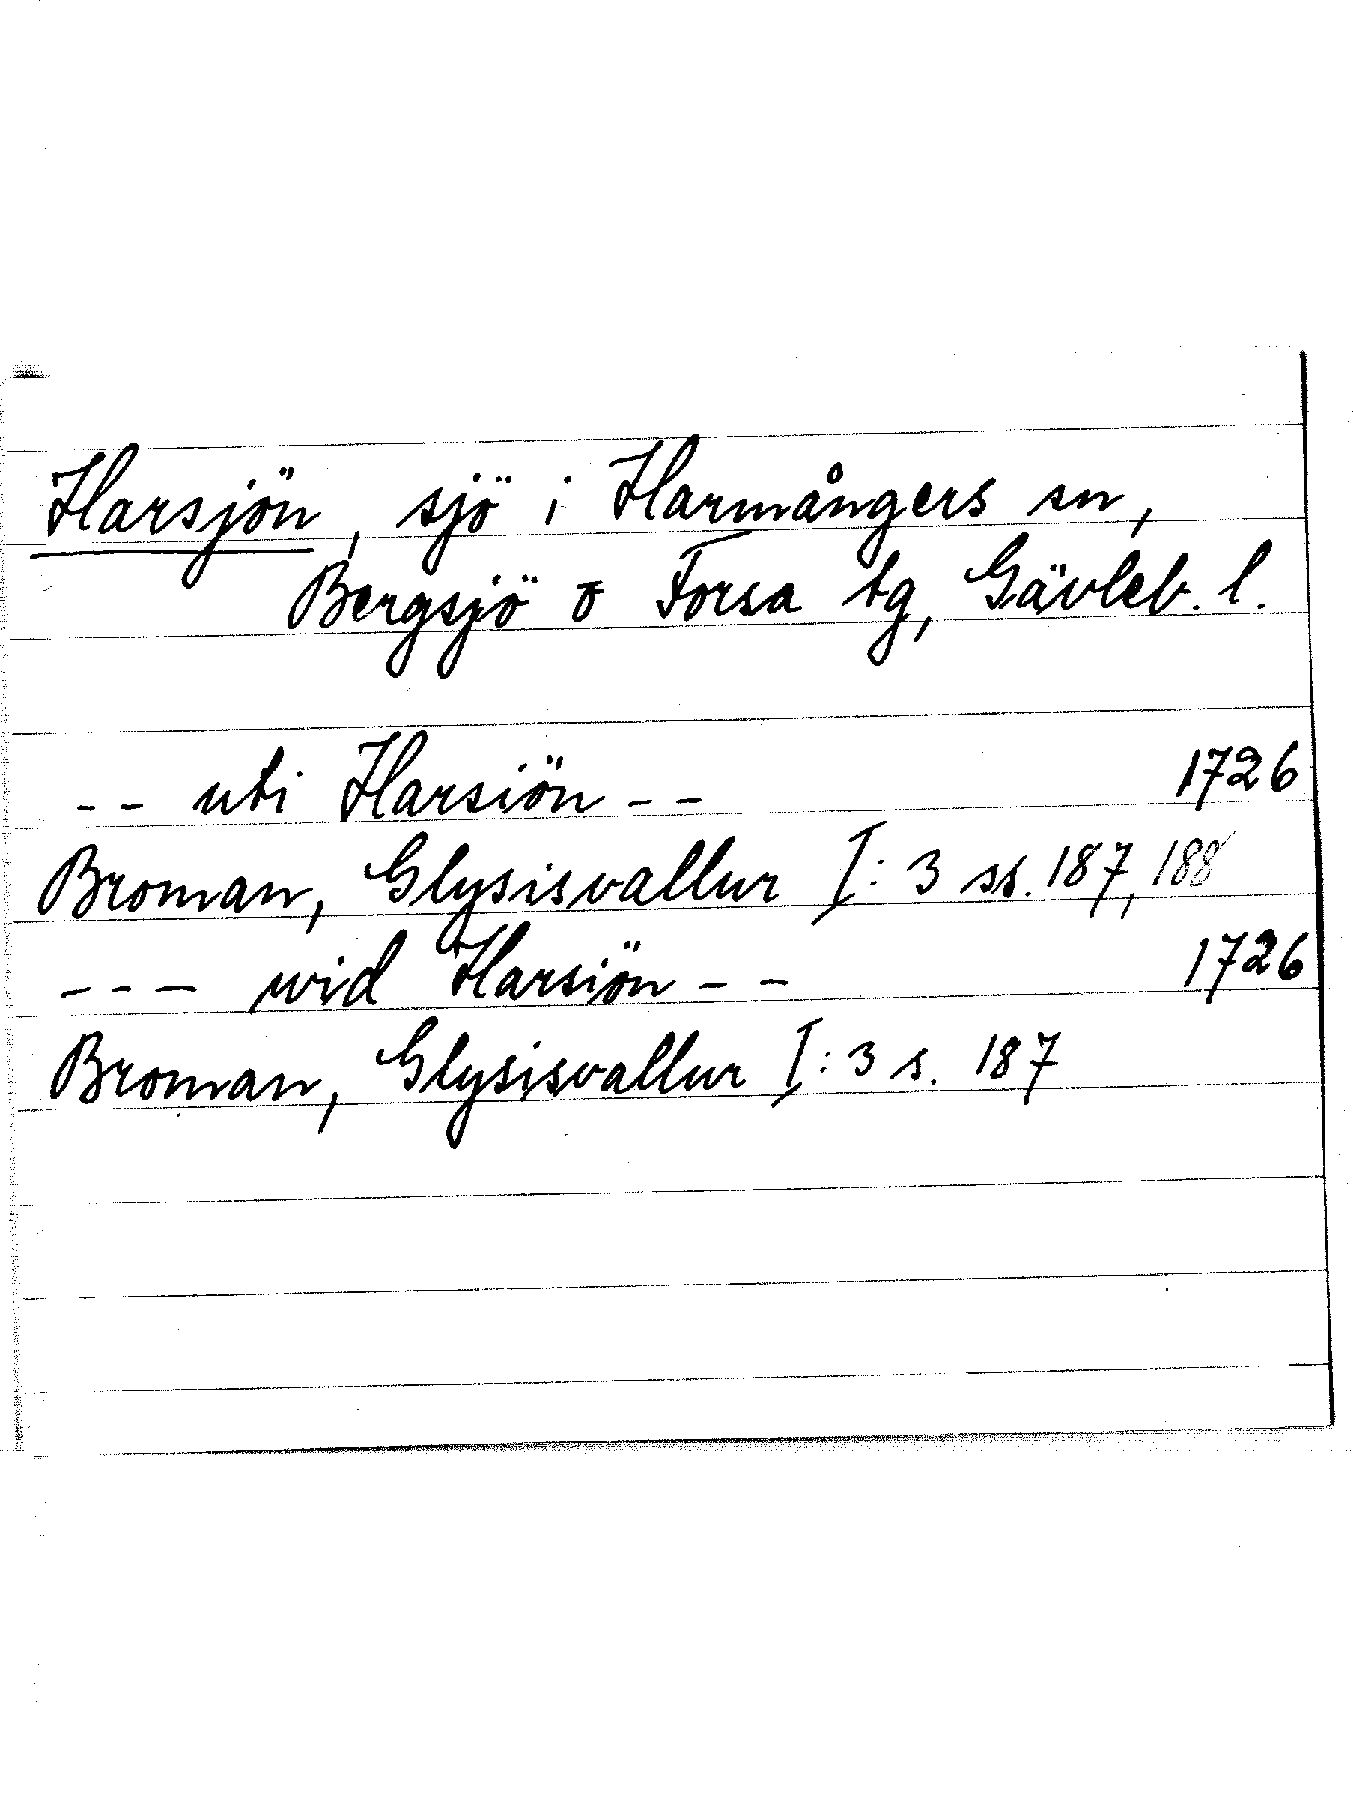 Harsjön, sjö i Harmångers sn,
Bergsjö o Forsa tg, Gävleb. l.
-- uti Harsiön -- 1726
Broman, Glysisvallur I:3 ss. 187, 188
--- wid Harsiön -- 1726
Broman, Glysisvallur I:3 s. 187